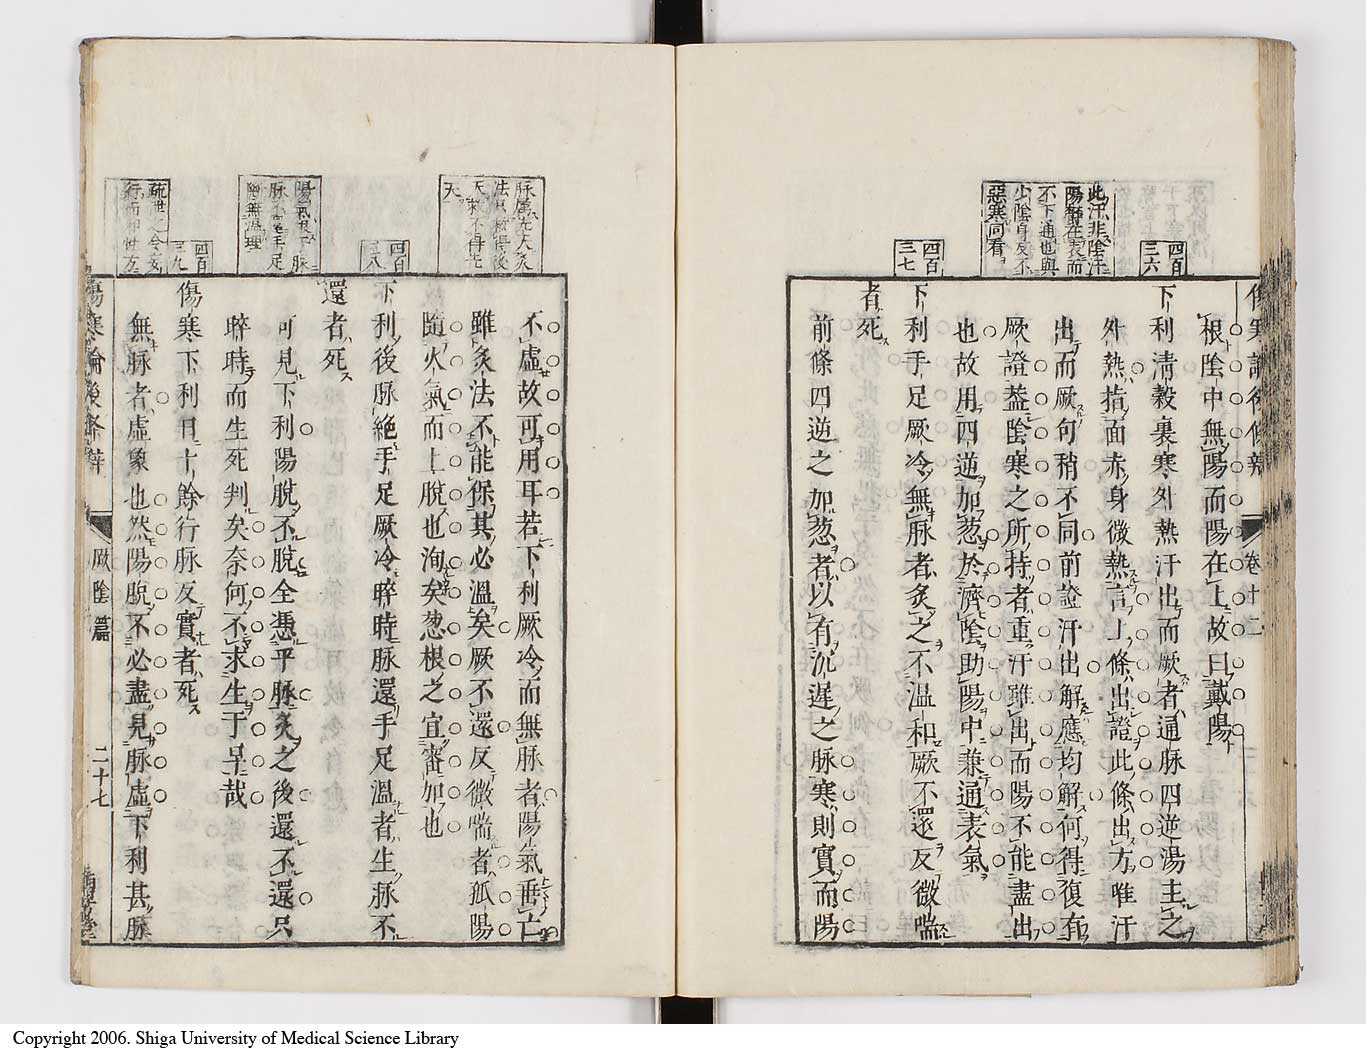 傷寒論後條辨
卷十二
根陰中無陽而陽在上故曰戴陽
四百三六
下利淸穀裏寒外熱汗出而厥者通脉四逆湯主之
外熱指面赤身微熱言上條出證此條出方唯汗
出而厥句稍不同前證汗出解應均解何得復有
厥證葢陰寒之所持者重汗雖出而陽不能盡出
也故用四逆加葱於濟陰助陽中兼通表氣
此汗非陰汗
陽欝在表而
不下通也與
少陰身反不
惡寒同看
四百三七
下利手足厥冷無脉者灸之不溫和厥不還反微喘
者死
前條四逆之加葱者以有沉遲之脉寒則實而陽
不虛故可用耳若下利厥冷而無脉者陽氣垂亡
雖灸法不能保其必溫矣厥不還反微喘者孤陽
隨火氣而上脫也洵矣葱根之宜審加也
四百三八
下利後脉絕手足厥冷晬時脉還手足溫者生脉不
還者死
可見下利陽脫不脫全憑乎脉灸之後還不還只
晬時而生死判矣奈何不求生于早哉
四百三九
傷寒下利日十餘行脉反實者死
無脉者虛象也然陽脫不必盡見脉虛下利甚脉
傷寒論後條辨
厥陰篇
二十七
Copyright 2006. Shiga University of Medical Science Library